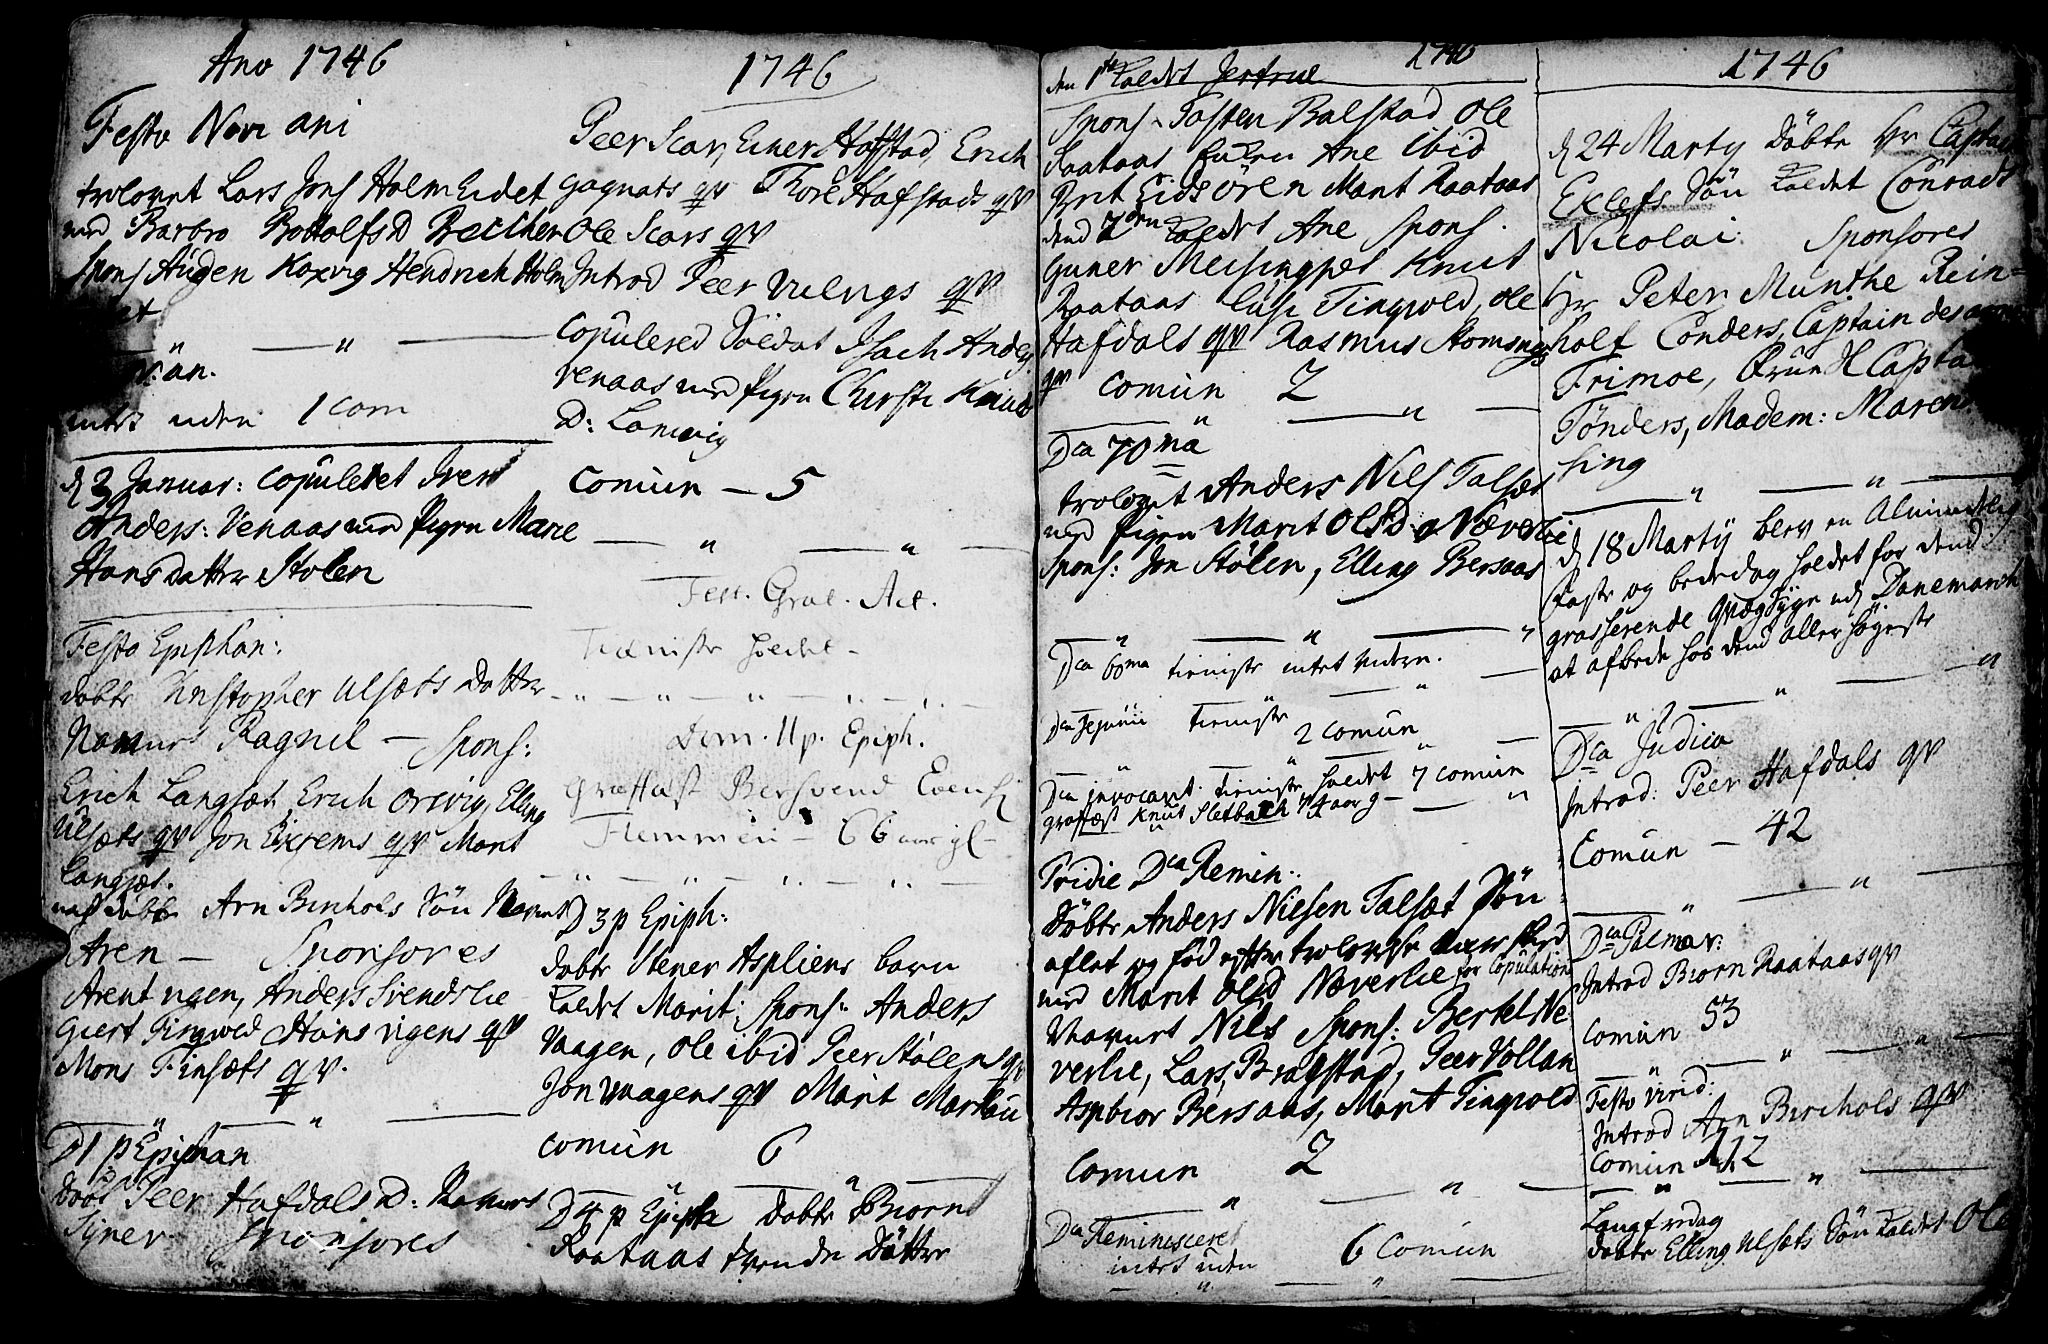 Ano 1746
Festo Novi ani
trolovet Lars Jons Holm Eidet
med Barbro Bottolfs D
Spons Augen Koxvig Hendrich Holm
intet uden 1 Com
d 3 Januar: copuleret Iver
Anders: Venaas med Pigen Marie
Hans Datter Stolen
Festo Epiphan:
døbte Christopher Ulsæts Datter
Navnet Ragnil — Spons:
Erich Langsæt Erich Orsvig Elling
Ulsæts qv Jon Eixrems qv Marit
Langsæt.
døbte Arn Birihols Søn Navnet
Aren — Sponsores
Arent vigen, Anders Svendslie
Giert Tingvold Hans vigens qv
Mons Finsæts qv.
D 1 p Epiphan
døbt Peer Hafdals D: Navnet
Siner Sponsores
1746
Peer Scar, Einer Hafstad, Erich
gagnats qv Thore Hafstads qv
Ole Scars qv
Introd Peer Vulvigs qv
copulered Soldat Isach Anders
venaas med Pigen Chirsti Knuds
D: Lonevig
Comun — 5
Fest. Grat. Act.
Tieniste holdet —
Dom. 11 p. Epiph.
Graffæst Bersvend Evens
Flemmen — 66 aar gl —
D 3 p Epiph:
døbte Stener Aspliens barn
kaldet Marit: Spons: Anders
Vaagen, Ole ibid Peer Stølens qv
Jon vaagens qv Marit
comun 6
D 4 p Epiph døbte Biørn
Raataas tvende Døttre
1746
den 1ste kaldet Jertrue
Spons Tosten Balstad Ole
Raataas Ane ibid
Brit Eidsøren Marit Raataas
dend 7den kaldet Ane Spons.
Guner Meisingset Knut
Raataas Lisi Tingvold, Ole
Hafdals qv Rasmus
qv comun 2
Dca 70ma
trolovet Anders Nils Talset
med Pigen Marit Ols D Næverlie
Spons: Jon Stølen, Elling Bersaas
Dca 60ma tieniste intet videre.
Dca tieniste
2 comun
Dca invocavit. tieniste holdet 7 comun
graffæst Knut Sletbach 74 aar g —
Pridie Dca Remin:
Døbte Anders Nilsen Talsæt Søn
aflet og fød efter trolovelse
med Marit Ols D Næverlie for Copulation
Navnet Nils Spons: Bertel Ne
verlie, Lars Bragstad, Peer Vollan
Asbior Bersaas, Marit Tingvold
Comun 2
Dca Reminiscere
intet uden 6 Comun
1746
d 24 Marty Døbte Hr Captain
Eclefs Søn kaldet Conradt
Nicolai. Sponsores
Hr Peter Munthe Rein=
holt Conders, Captain
Frimoe, Captain
Tønders, Madem: Maren
sing
d 18 Marty blev en Almindelig
faste og bededag holdet for dend
grasserende qvægsyge udj Danemarch
at afbede hos dend allerhøyeste
Dca Judica
Introd: Peer Hafdals qv
Comun — 42
Dca Palmar:
Introd Biorn Raataas qv
comun 53
Festo virid:
Introd Arn Birihols qv
Comun 112
Langfredag
døbte Elling Ulsæts Søn kaldet Ole